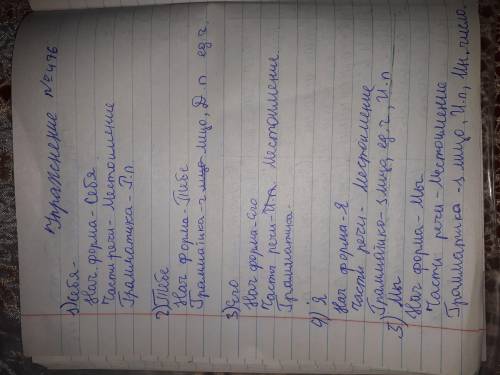 Упражнение №476
1) Себя-
Нач. форма - Себя
Части речи - Местоимение
Грамматика - Р.п
2) Тебе
Нач форма - Тебе
Грамматика - 2 лицо, Д.п ед.ч.
3) Его
Нач форма - Его
Части речи - Местоимение
Грамматика -
4) Я
Нач форма - Я
Части речи - Местоимение
Грамматика - 1 лицо, ед.ч, И.п
5) Мы
Нач форма - Мы
Части речи - Местоимение
Грамматика - 1 лицо, И.п, Мн. число.